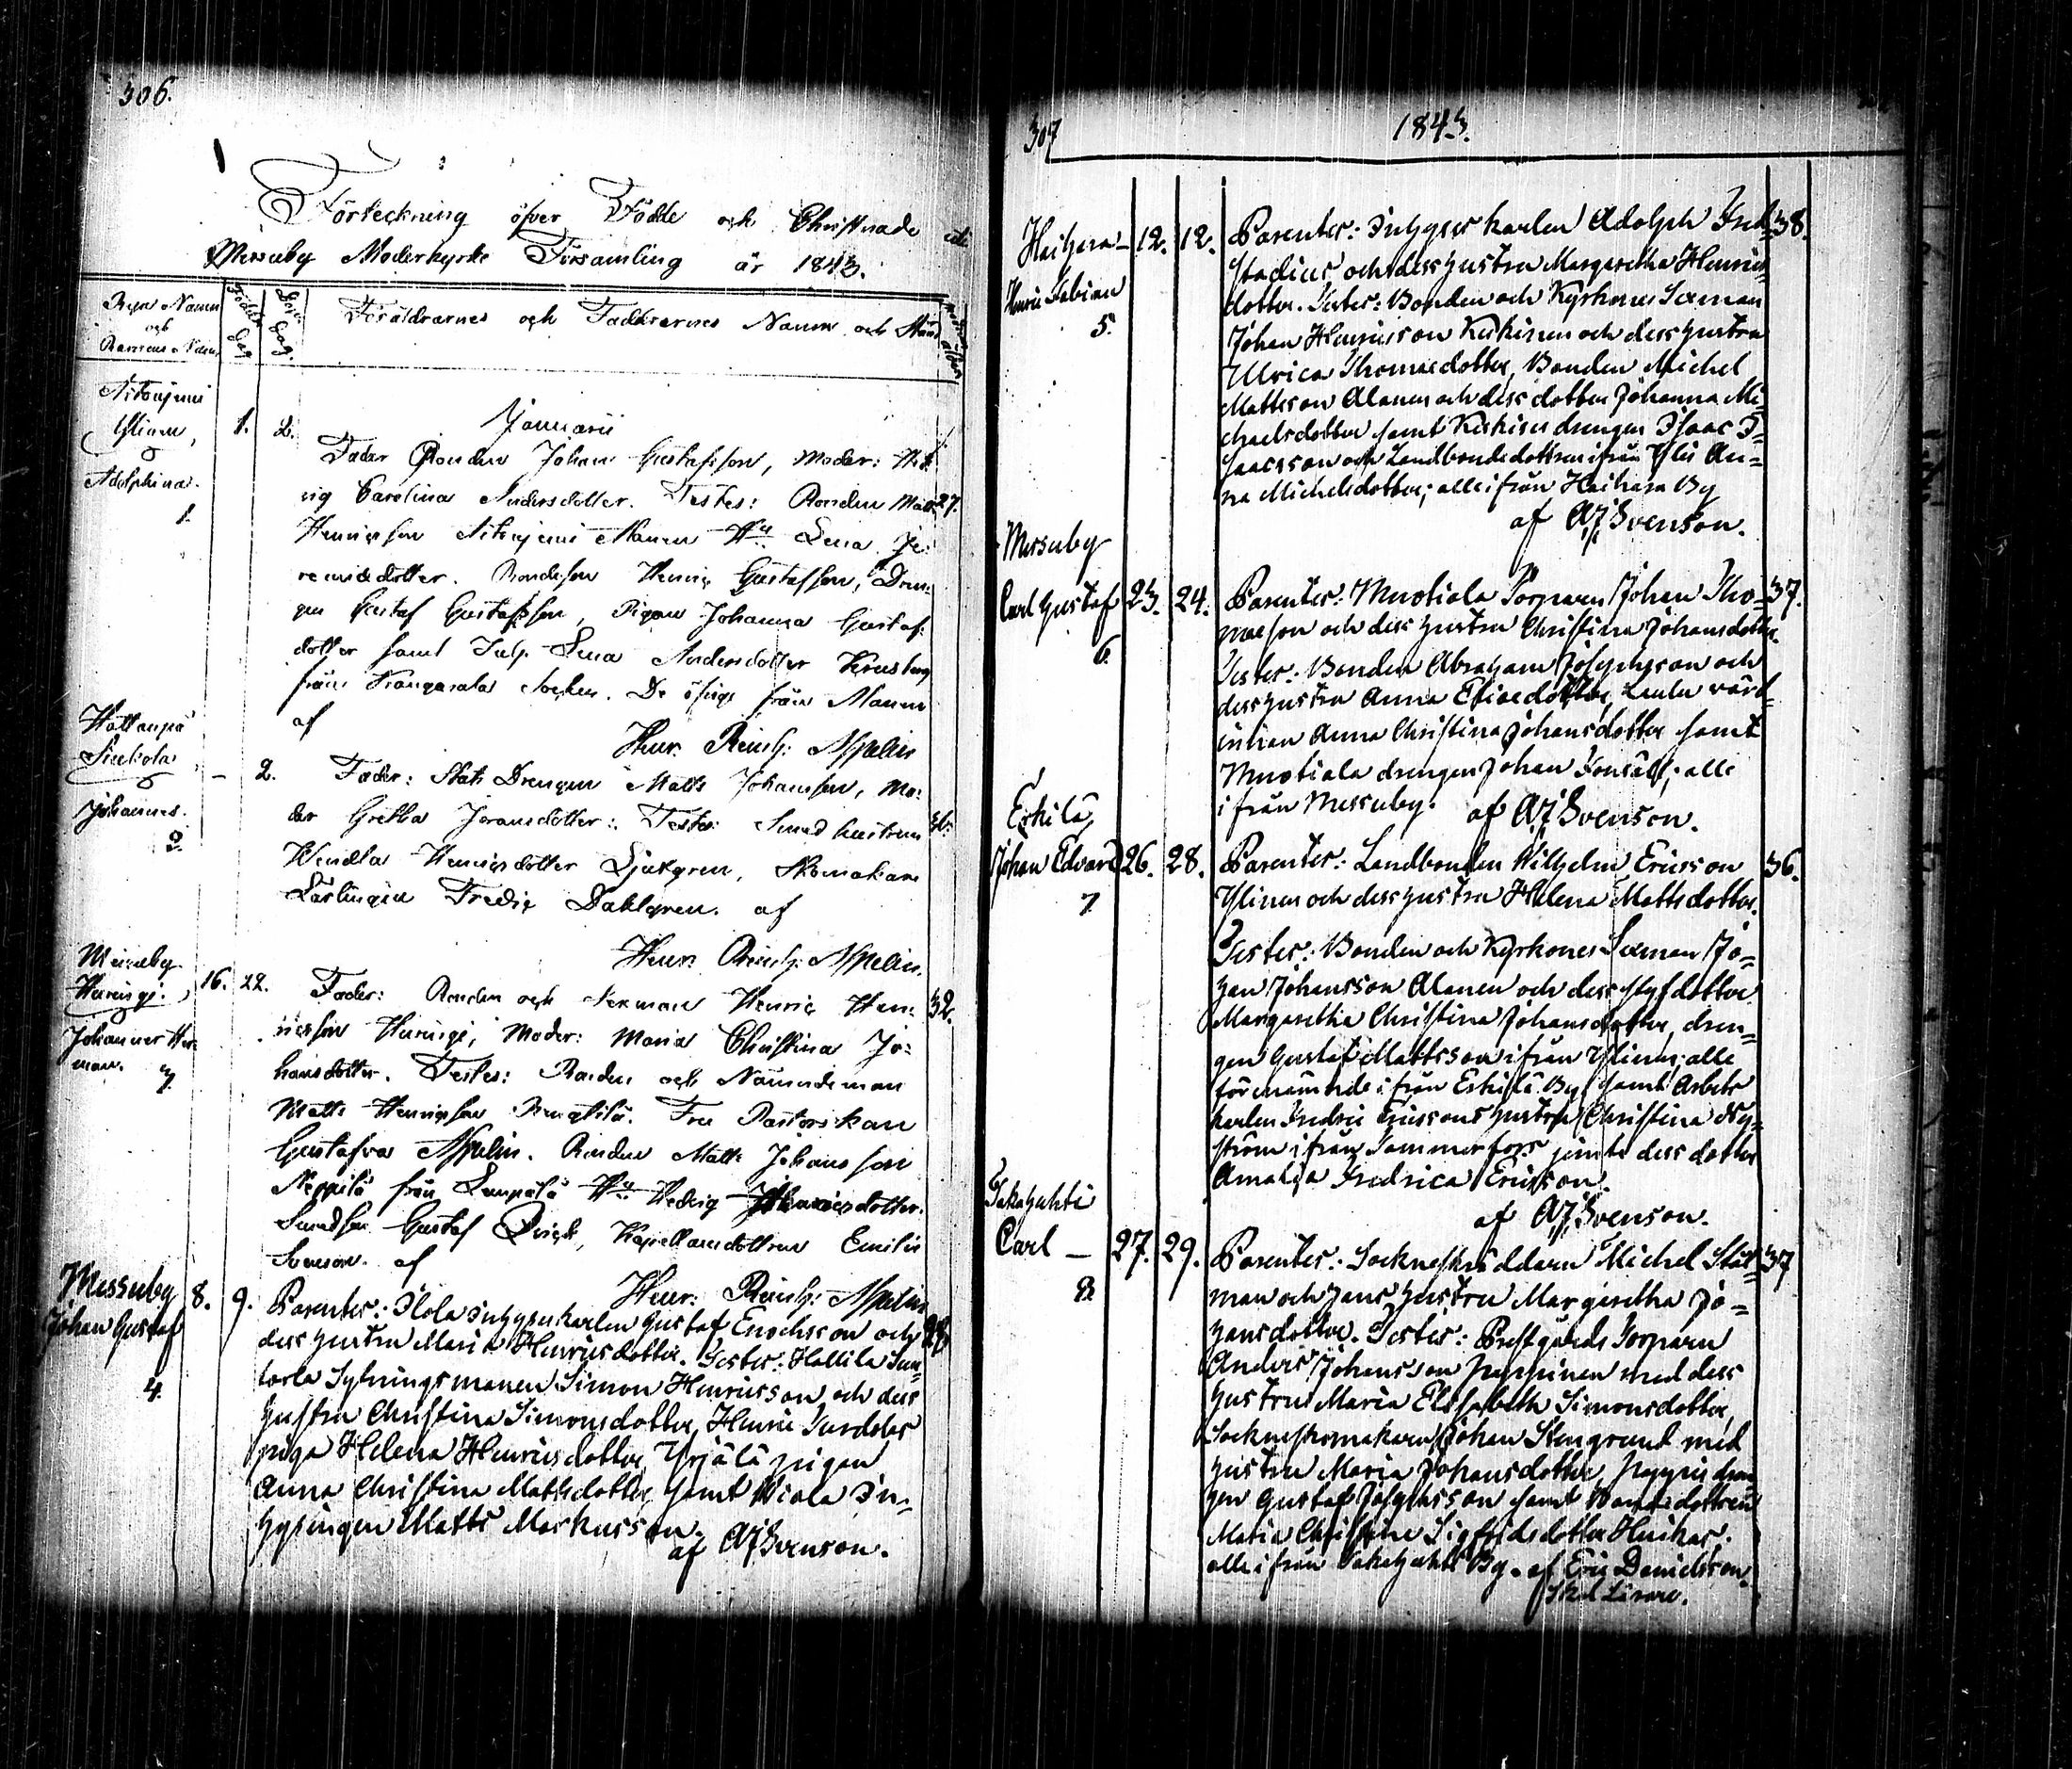 306.
Förteckning öfver Födde och Christnade uti
Messuby Moderkyrko Församling år 1843.
Byns Namn och Barnens Namn
Födelse Dag
Döpelse Dag.
Föräldrarnes och Faddrarnes Namn och Stånd
Ylinen,
Adolphina.
1.
1. 2.
Januarii
Fader Bonden Johan Gustafsson, Moder: Hed-
vig Carolina Andersdotter. Testes: Bonden Matts 27.
Henricsson Alanen Hu Lena Je-
remiedotter. Bondeson Henric Gustafsson, Dren-
gen Gustaf Gustafsson, Pigan Johanna Gustafs-
dotter samt Lena Andersdotter
från Kangasala Socken. De öfrige från
af
Henr. Reinh: Aspelin
Hattanpä
Johannes.
2.
- 2. Fader: Stats Drengen Matts Johansson, Mo-
der Gretha Johansdotter: Testes: Smed hustrun
Wendla Henricsdotter Sjukgren, Skomakare
Lärlingen Fredric Dahlgren. af
Henr. Reinh: Aspelin.
Messuby
Johannes Her-
man. 3
16. 22. Fader: Bonden och Sexman Henric Hen- 32.
ricsson, Moder: Maria Christina Jo-
hansdotter. Testes: Bonden och Nämndeman
Matts Henricsson. Fru Pastorskan
Gustafva Aspelin. Bonden Matts Johansson
från Lempälä Hu Hedvig Henricsdotter.
Gustaf Qvist, Kapellansdottren Emilie
Svenson. af
Henr: Reinh: Aspelin
Messuby
Johan Gustaf
4.
8. 9. Parentes: Ilola Inhyseskarlen Gustaf Enochsson och
dess hustru Maria Henricsdotter. Testes: Hallila
Sytningsmannen Simon Henricsson och dess
hustru Christina Simonsdotter, Henric
piga Helena Henricsdotter, Yrjälä pigan
Anna Christina Mattsdotter, samt Wiola In-
hysingen Matts Markusson.
af AJ Svenson.
307
1843.
Haihara -
Henric Fabian
5.
12. 12. Parentes: Inhyses karlen Adolph Fred. 38.
Stadius och dess hustru Margaretha Henrics
dotter. Testes: Bonden och Kyrkones Sexman
Johan Henricsson Keskinen och dess hustru
Ulrica Thomasdotter, Bonden Michel
Mattsson Alanen och dess dotter Johanna Mi-
chaelsdotter samt Keskisen drengen Isaac I-
saacsson och Landbondedottren ifrån Yli An-
na Michelsdotter; alle ifrån Haihara By
af AJ Svenson.
Messuby
Carl Gustaf
6.
23. 24. Parentes: Muotiala Torparen Johan Tho- 37.
masson och dess hustru Christina Johansdotter.
Testes: Bonden Abraham Josephsson och
dess hustru Anna Eliaedotter, Laula värd-
innan Anna Christina Johansdotter samt
Muotiala drengen Johan; alle
ifrån Messuby. af AJ Svenson.
Erkilä,
Johan Edvard
7
26. 28. Parentes: Landbonden Wilhelm Ericsson 36.
Ylinen och dess hustru Helena Mattsdotter.
Testes: Bonden och Kyrkones Sexman Jo-
han Johansson Alanen och dess styfdotter
Margaretha Christina Johansdotter, dren-
gen Gustaf Mattsson ifrån Ylinen; alle
förenämnde ifrån Erkilä By samt Arbets
karlen Fredric Ericssons hustru Christina Ny-
ström ifrån Tammerfors jemte dess dotter
Amalia Fredrica Ericsson.
af AJ Svenson.
Takahuhti
Carl -
8.
27. 29. Parentes: Sockneskräddaren Michel Stål- 37
man och hans hustru Margaretha Jo-
hansdotter. Testes: Prestgårds Torparen
Anders Johansson med dess
hustru Maria Elisabeth Simonsdotter,
Sockneskomakaren Johan Stengrund med
hustru Maria Johansdotter, dren-
gen Gustaf Josephsson samt Bondedottren
Maria Christina Sigfridsdotter.
alle ifrån Takahuhti By. af Eric Danielsson.